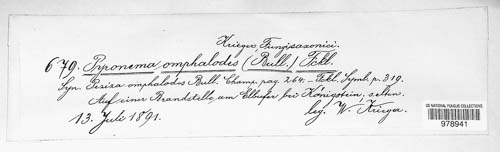 Krieger Fungi saxonici.
679. Pyronema omphalodes (Bull.) Fckl.
Syn. Peziza omphalodes Bull. Champ. pag. 264. Fckl. Symb. p. 319.
Auf einer Brandstelle am Elbufer bei Königstein, selten.
13. Juli 1891. leg. W. Krieger.
US NATIONAL FUNGUS COLLECTIONS
978941